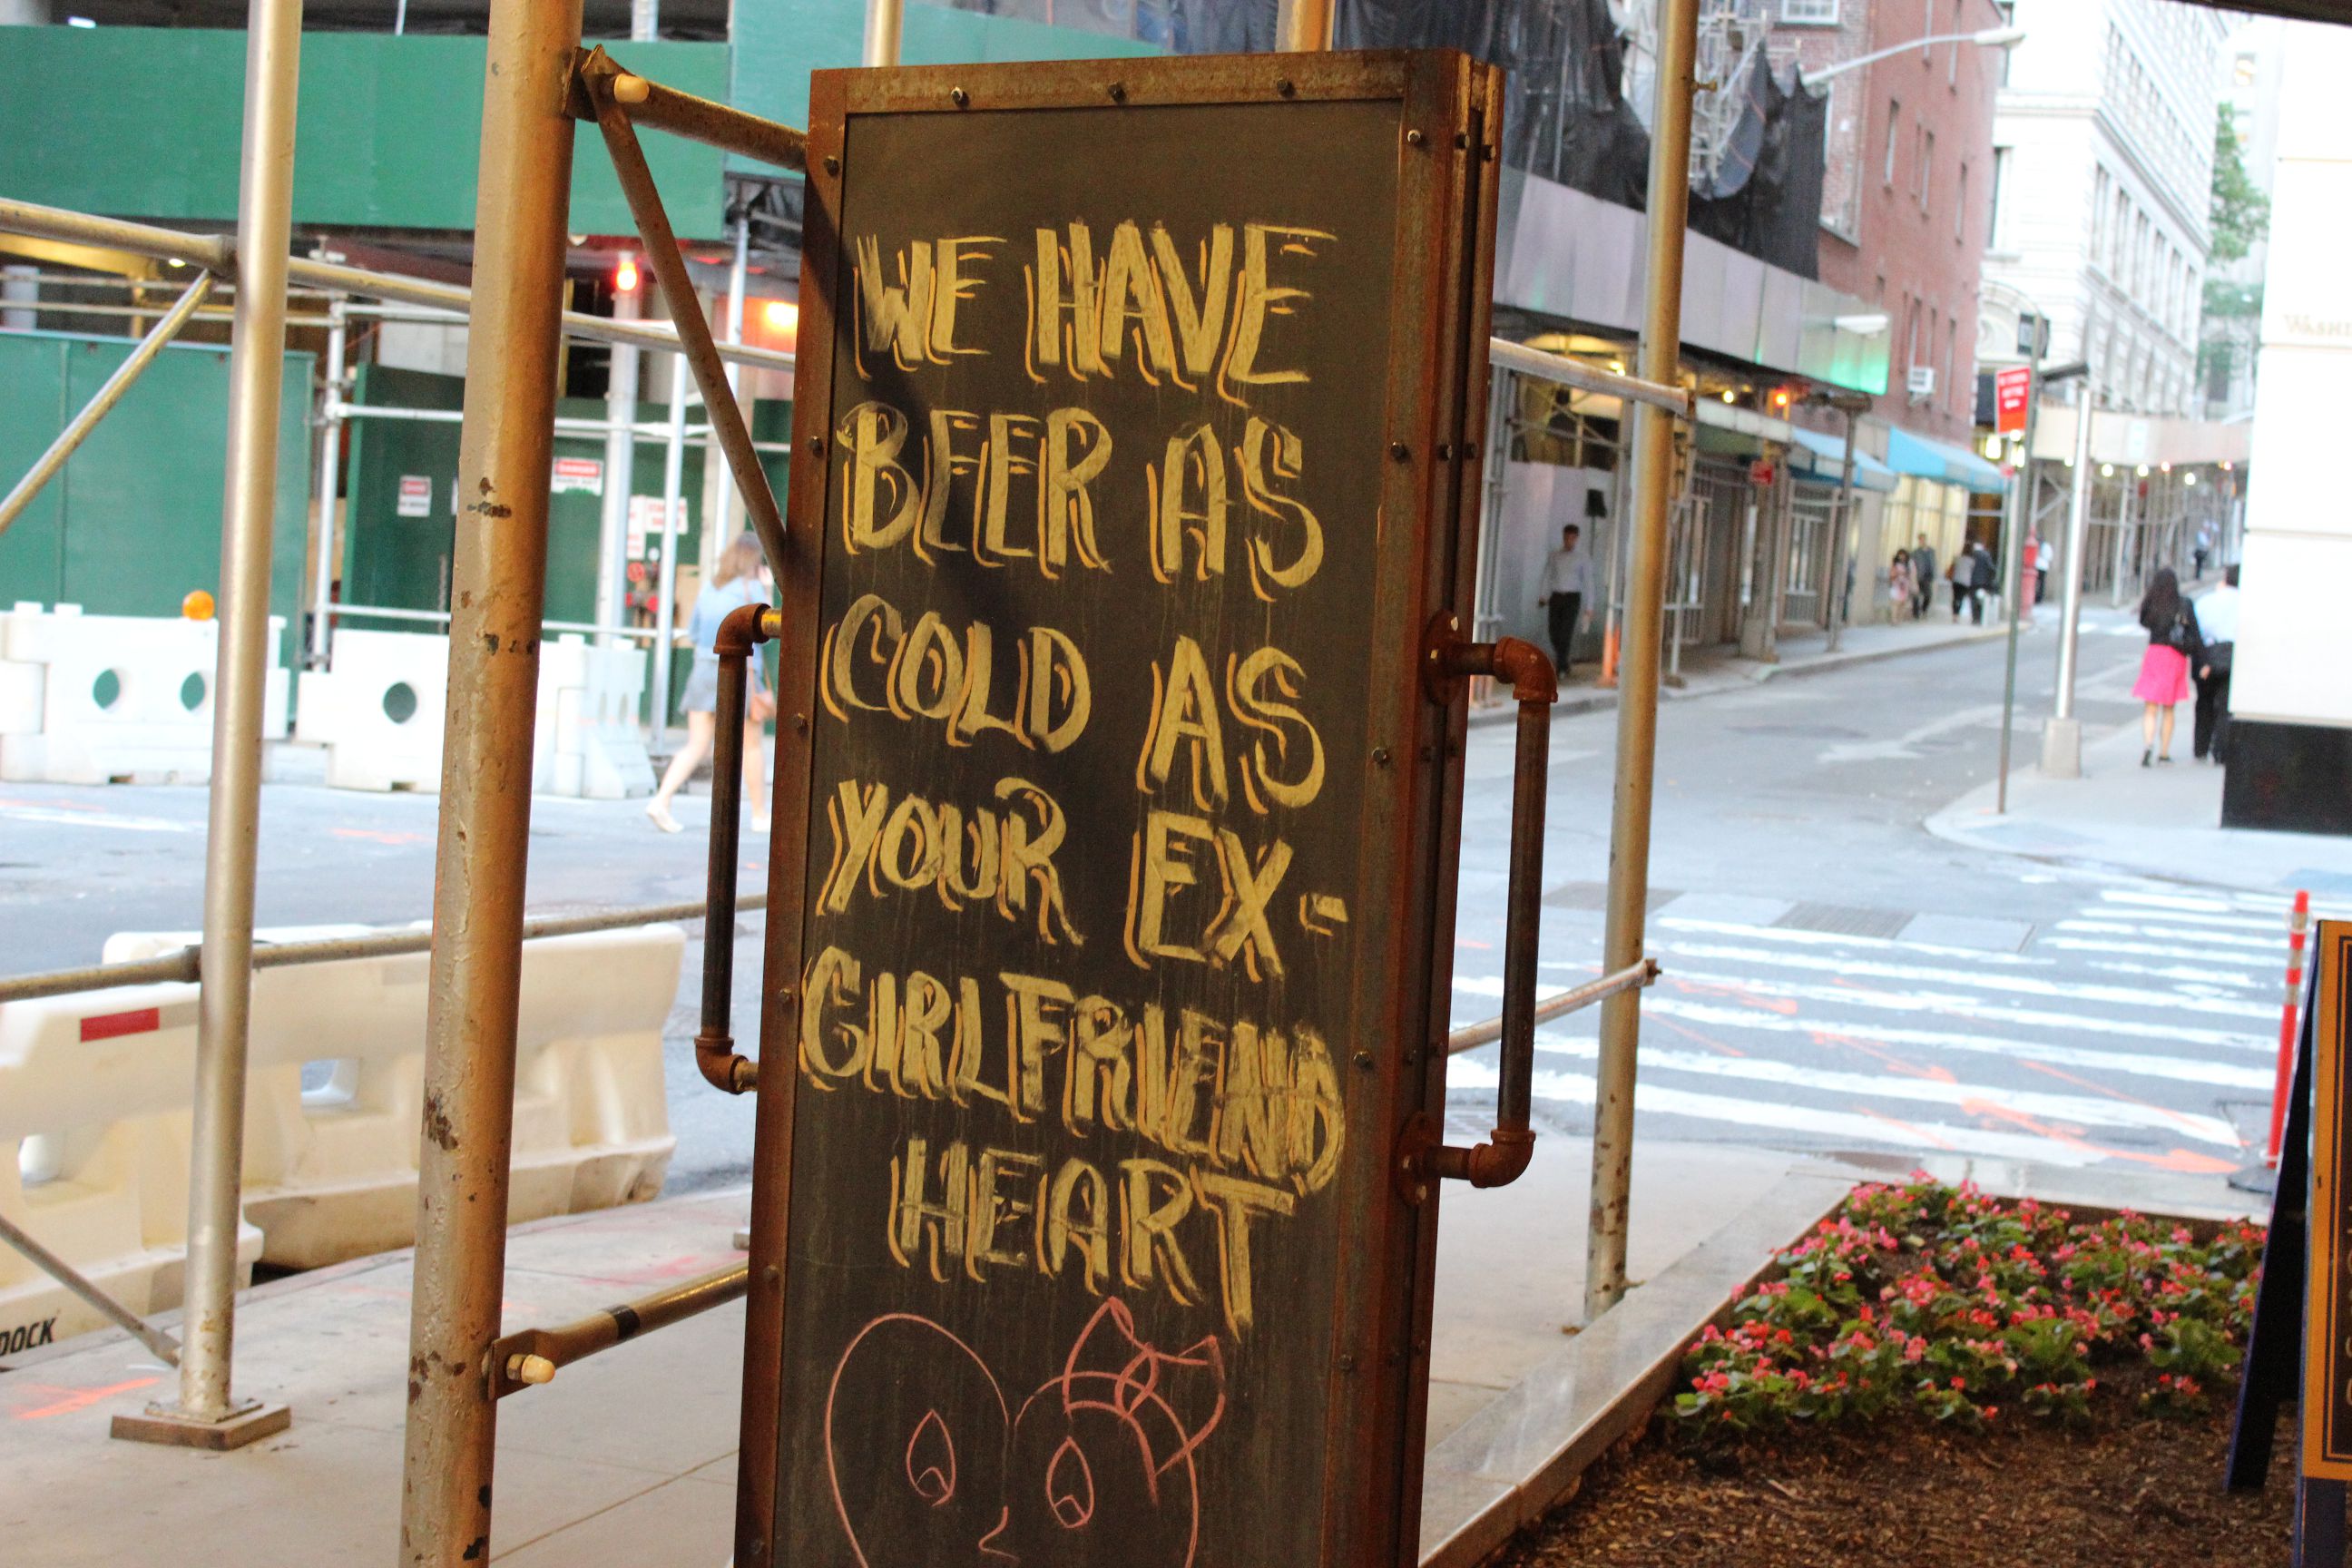 WE HAVE
BEER AS
COLD AS
YOUR EX-
GIRLFRIEND
HEART
DOCK